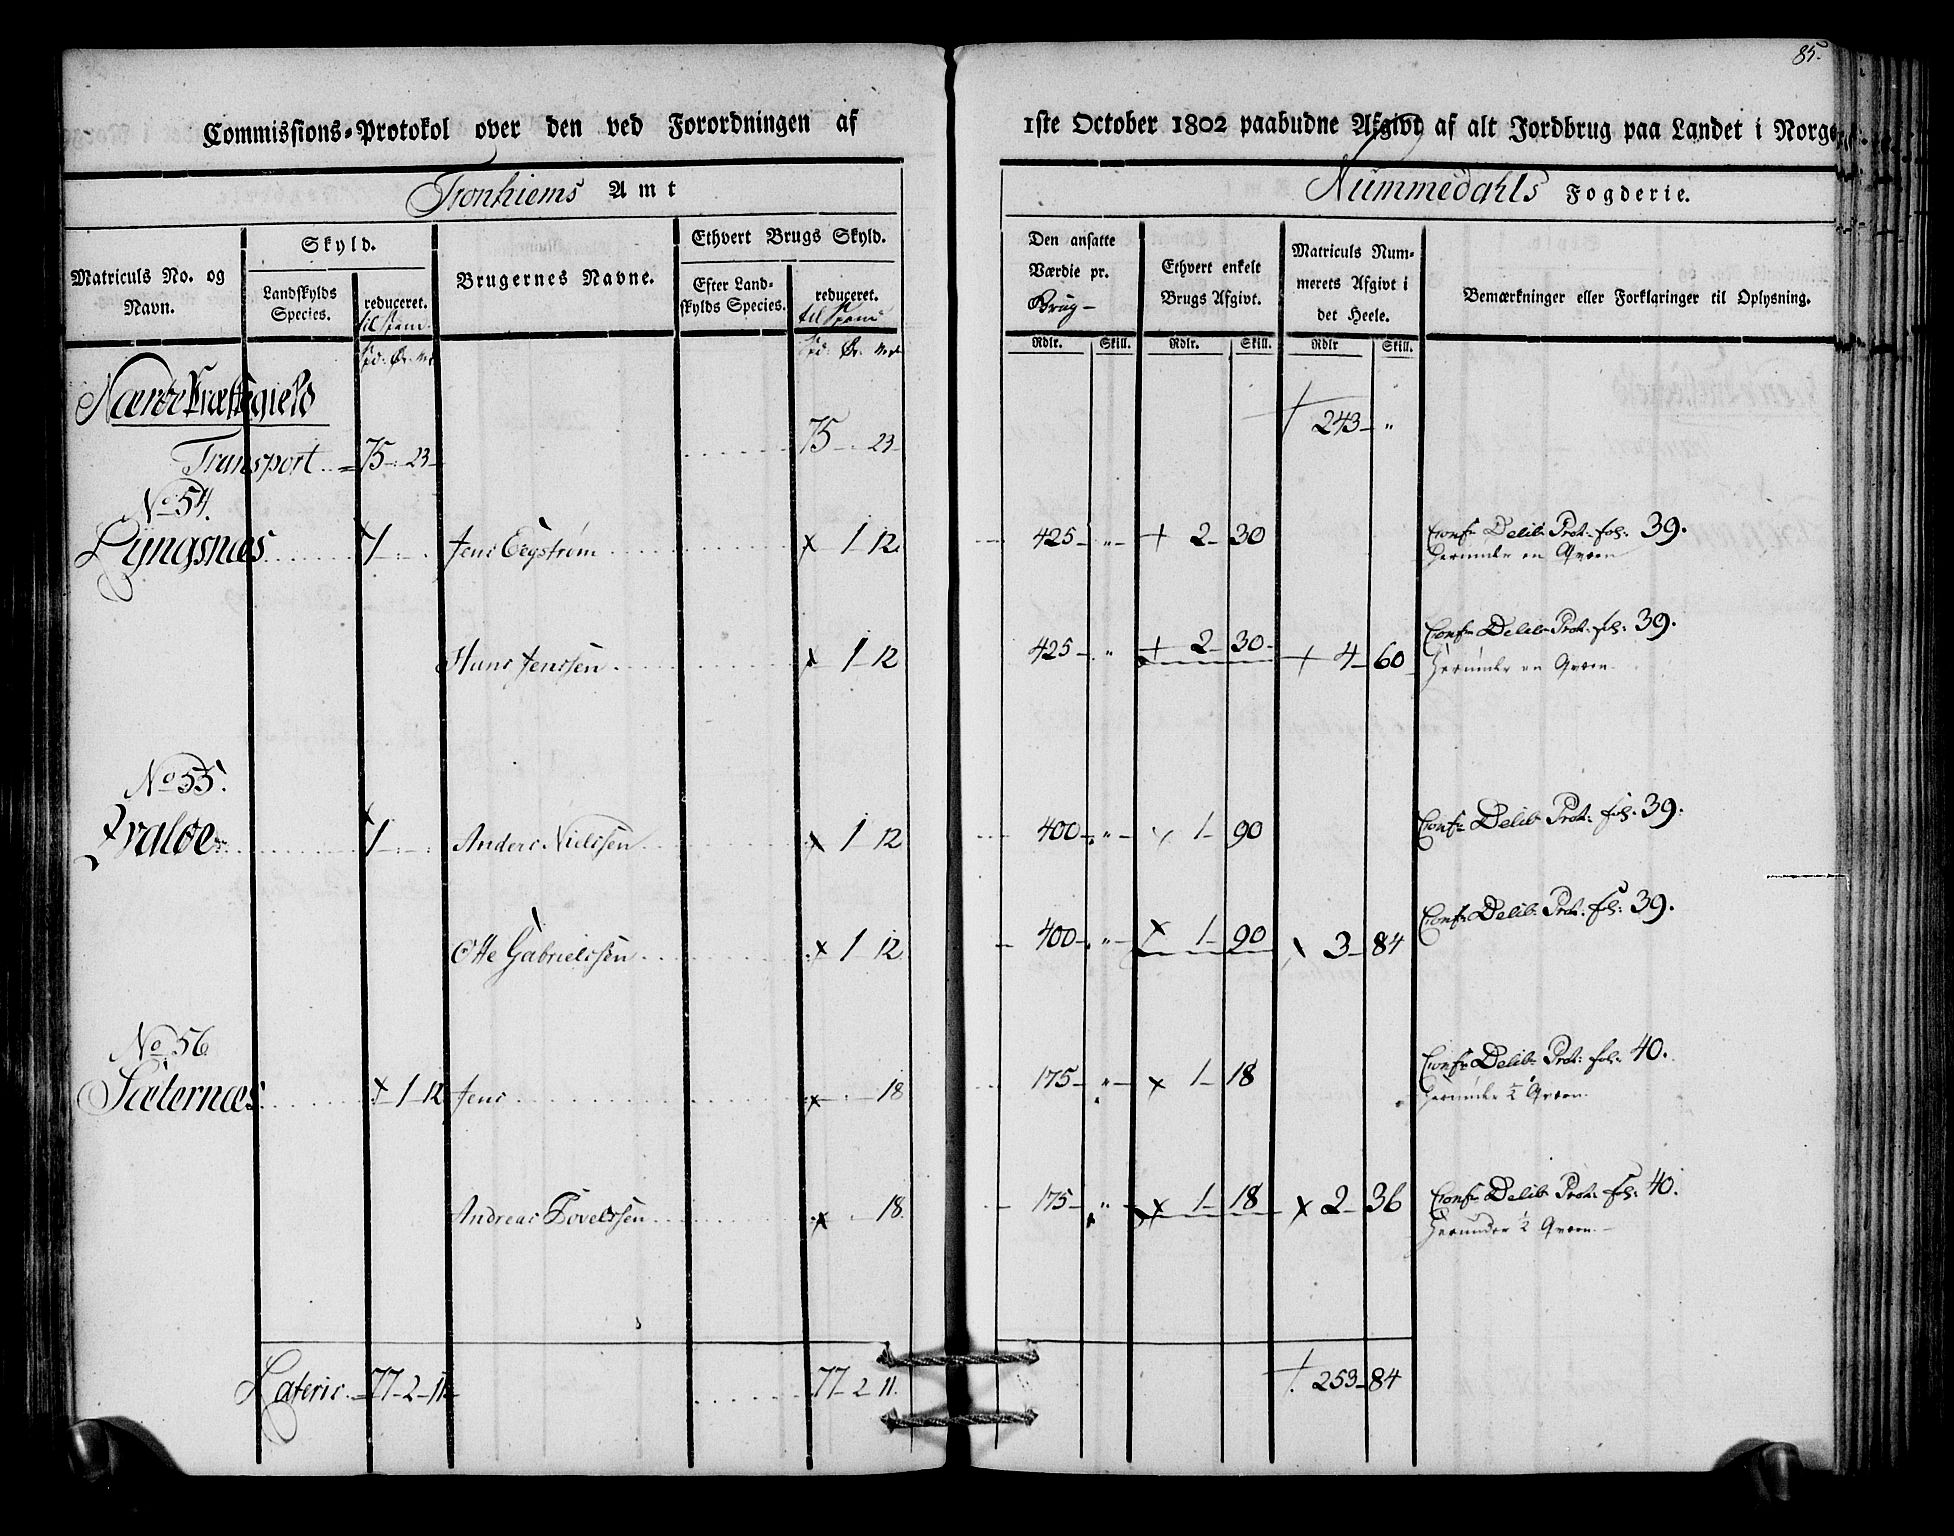 85.
Commissions-Protokol over den ved Forordningen af 1ste October 1802 paabudne Afgivt af alt Jordbrug paa Landet i Norge
Tronhiems Amt
Nummedahls Fogderie.
Matriculs No. og Navn.
Skyld.
Landskylds Species.
reduceret.
Brugernes Navne.
Ethvert Brugs Skyld.
Efter Landskylds Species.
reduceret.
Den ansatte Værdie pr. Brug-
Ethvert enkelt Brugs Afgivt.
Matriculs Nummerets Afgivt i det Heele.
Bemærkninger eller Forklaringer til Oplysning.
Rdlr. Skill. Rdlr. Skill. Rdlr Skill.
Nærøe Præstegield
Transport 75 - 23 75 - 23 243 - "
No 54.
Lyngsnæs 1 Jens Eegstrøm 1 12 425 - " 2 - 30 Conf Delib Prot. fol: 39.
Herunder en Qværn
Hans Jenssen 1 12 425 " 2 - 30 4 - 60 Conf Delib Prot. fol: 39.
Herunder en Qværn
No 55.
Qvaløe 1 Anders Nielssen 1 12 400 " 1 - 90 Conf Delib Prot. fol. 39.
Otte Gabrielssen 1 12 400 " 1 - 90 3 - 84 Conf Delib Prot. fol: 39.
No 56
Sæternæs 1 - 12 Jens 18 175 " 1 - 18 Conf Delib Prot: fol: 40.
Herunder ½ Qværn
Andreas Povelssen 18 175 " 1 - 18 2 - 36 Conf Delib Prot. fol: 40.
Herunder ½ Qværn
Lateris 77 - 2 - 11 77 - 2 11. 253 - 84